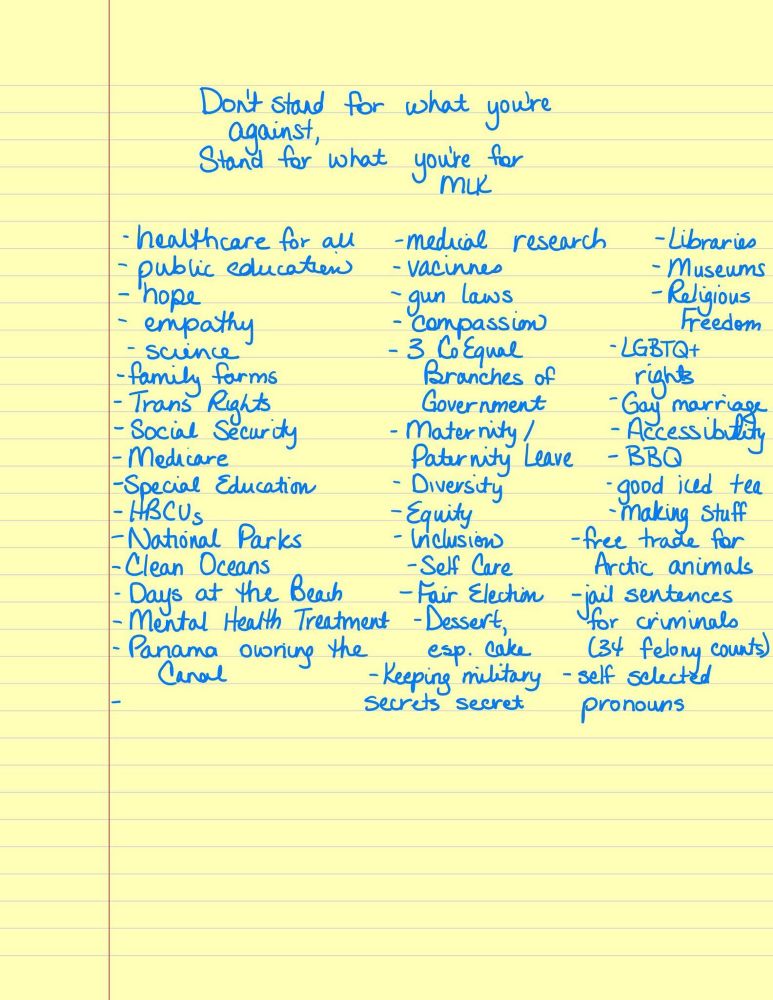 Don't stand for what you're
against,
Stand for what you're for
MLK
- healthcare for all
- public education
- hope
- empathy
- science
- family farms
- Trans Rights
- Social Security
- Medicare
- Special Education
- HBCUs
- National Parks
- Clean Oceans
- Days at the Beach
- Mental Health Treatment
- Panama owning the
Canal
-
- medical research
- vacinnes
- gun laws
- Compassion
- 3 CoEqual
Branches of
Government
- Maternity/
Paternity Leave
- Diversity
- Equity
- Inclusion
- Self Care
- Fair Election
- Dessert,
esp. cake
- Keeping military
secrets secret
- Libraries
- Museums
- Religious
Freedom
- LGBTQ+
rights
- Gay marriage
- Accessibility
- BBQ
- good iced tea
- Making stuff
- free trade for
Arctic animals
- jail sentences
for criminals
(34 felony counts)
- self selected
pronouns